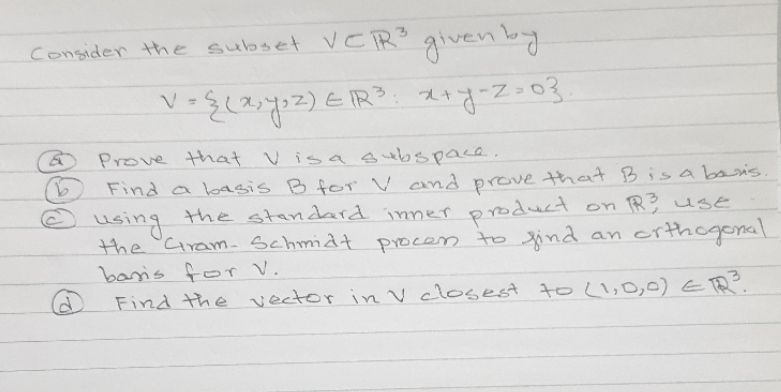 Consider the subset V⊂ℝ³ given by
V = {(x,y,z) ∈ ℝ³ : x+y-z=0}.
ⓐ Prove that V is a subspace.
ⓑ Find a basis B for V and prove that B is a basis.
ⓒ using the standard inner product on ℝ³, use
the Gram-Schmidt process to find an orthogonal
basis for V.
ⓓ Find the vector in V closest to (1,0,0) ∈ ℝ³.